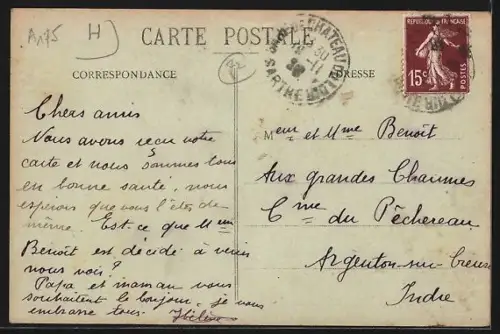 A175
H
CARTE POSTALE
CORRESPONDANCE
ADRESSE
REPUBLIQUE FRANÇAISE
15c
POSTES
CHATEAU DU LOIR
SARTHE
Chers amis
Nous avons reçu votre
carte et nous sommes tous
en bonne santé, nous
espérons que vous l'êtes de
même. Est-ce que Meur
Benoît est décidé à venir
nous voir?
Papa et maman vous
souhaitent le bonjour, je vous
embrasse tous. Hélène
Meur et Mme Benoît
Aux grandes Chaumes
Cme du Pêchereau
Argenton-sur-Creuse
Indre